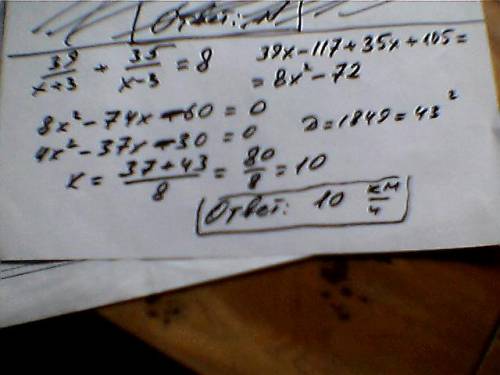 Ответ: N
39/(x+3) + 35/(x-3) = 8
39x-117+35x+105=
=8x²-72
8x²-74x-60=0
4x²-37x-30=0
D=1849=43²
x = (37+43)/8 = 80/8 = 10
Ответ: 10 км/ч